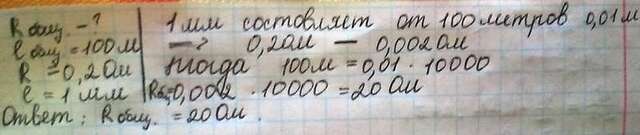 R общ. - ?
l общ = 100 м
R = 0,2 Ом
l = 1 мм
1 мм состовляет от 100 метров 0,01 м
0,2 Ом – 0,002 Ом
тогда 100 м = 0,01 · 10000
Rо = 0,002 · 10000 = 20 Ом
Ответ: R общ. = 20 Ом.